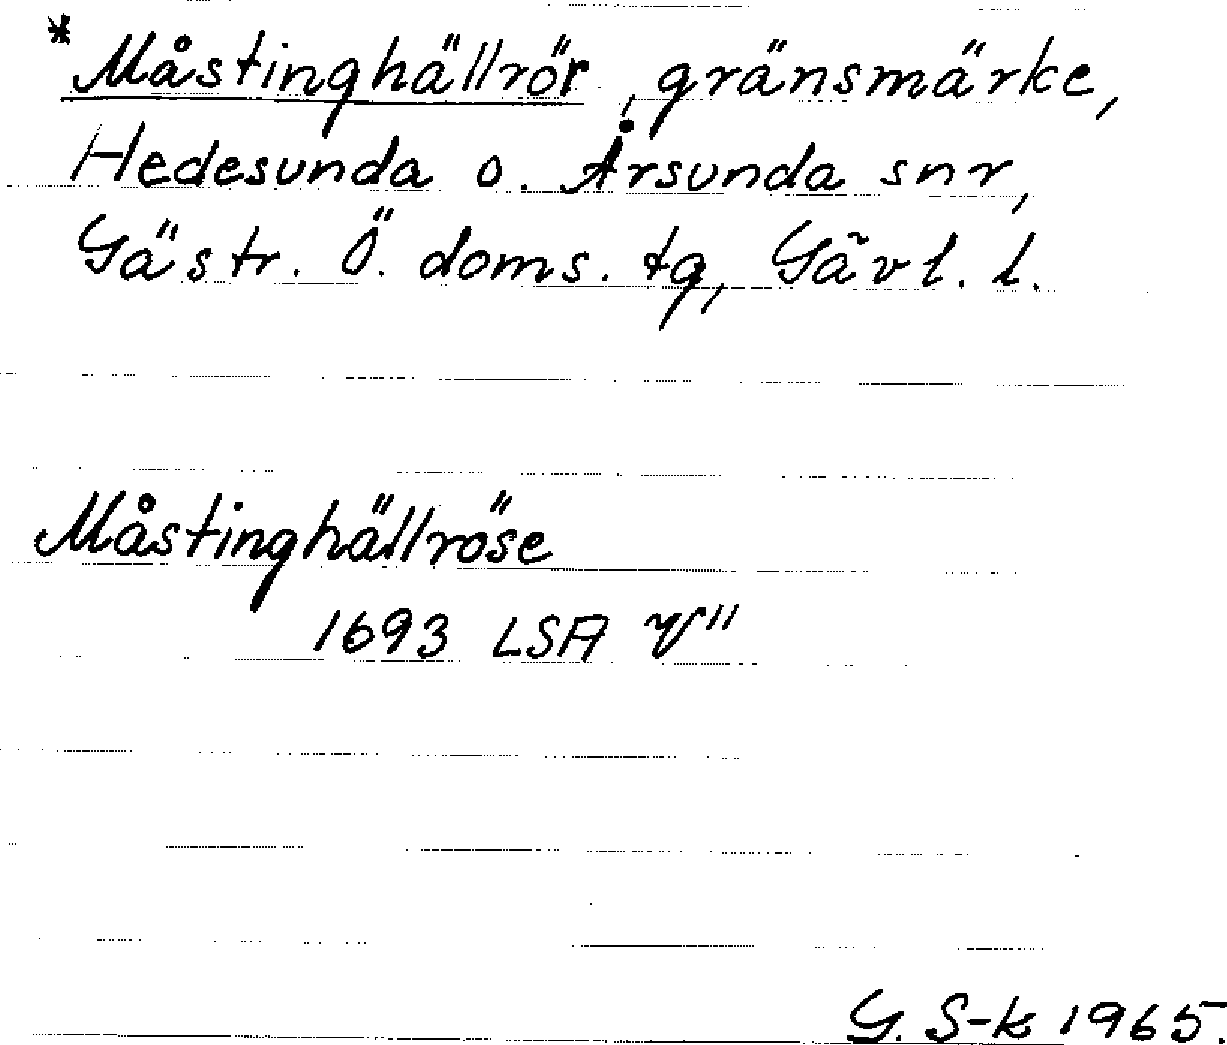 *Måstinghällrör, gränsmärke,
Hedesunda o. Årsunda snr,
Gästr. Ö. doms. tg, Gävl. l.
Måstinghällröse
1693 LSA
G. S-k 1965.